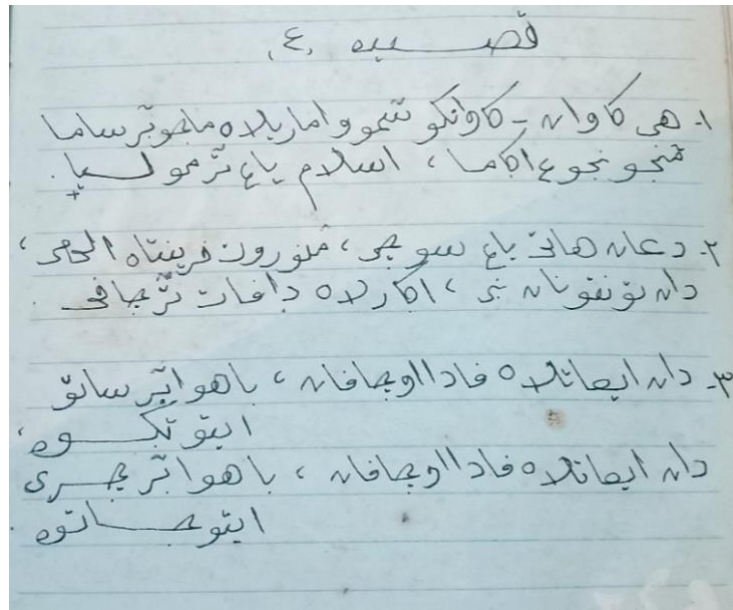 قصيده .٤.
١- هي كاوان - كاوانكو سموو امار يلاه ماجو برساما
منجونجوڠ اكاما ، اسلام ياڠ ترموليا.
٢- دڠان هاتي ياڠ سوچي ، منورون فرينتاه الٰهي ،
دان تونتونان نبي ، اكارلاه دافات ترچافي .
٣- دان ايڠاتلاه فادا اوچافان ، باهوا برساتو
ايتو تكوه ،
دان ايڠاتلاه فادا اوچافان ، باهوا برچري
ايتو جاتوه